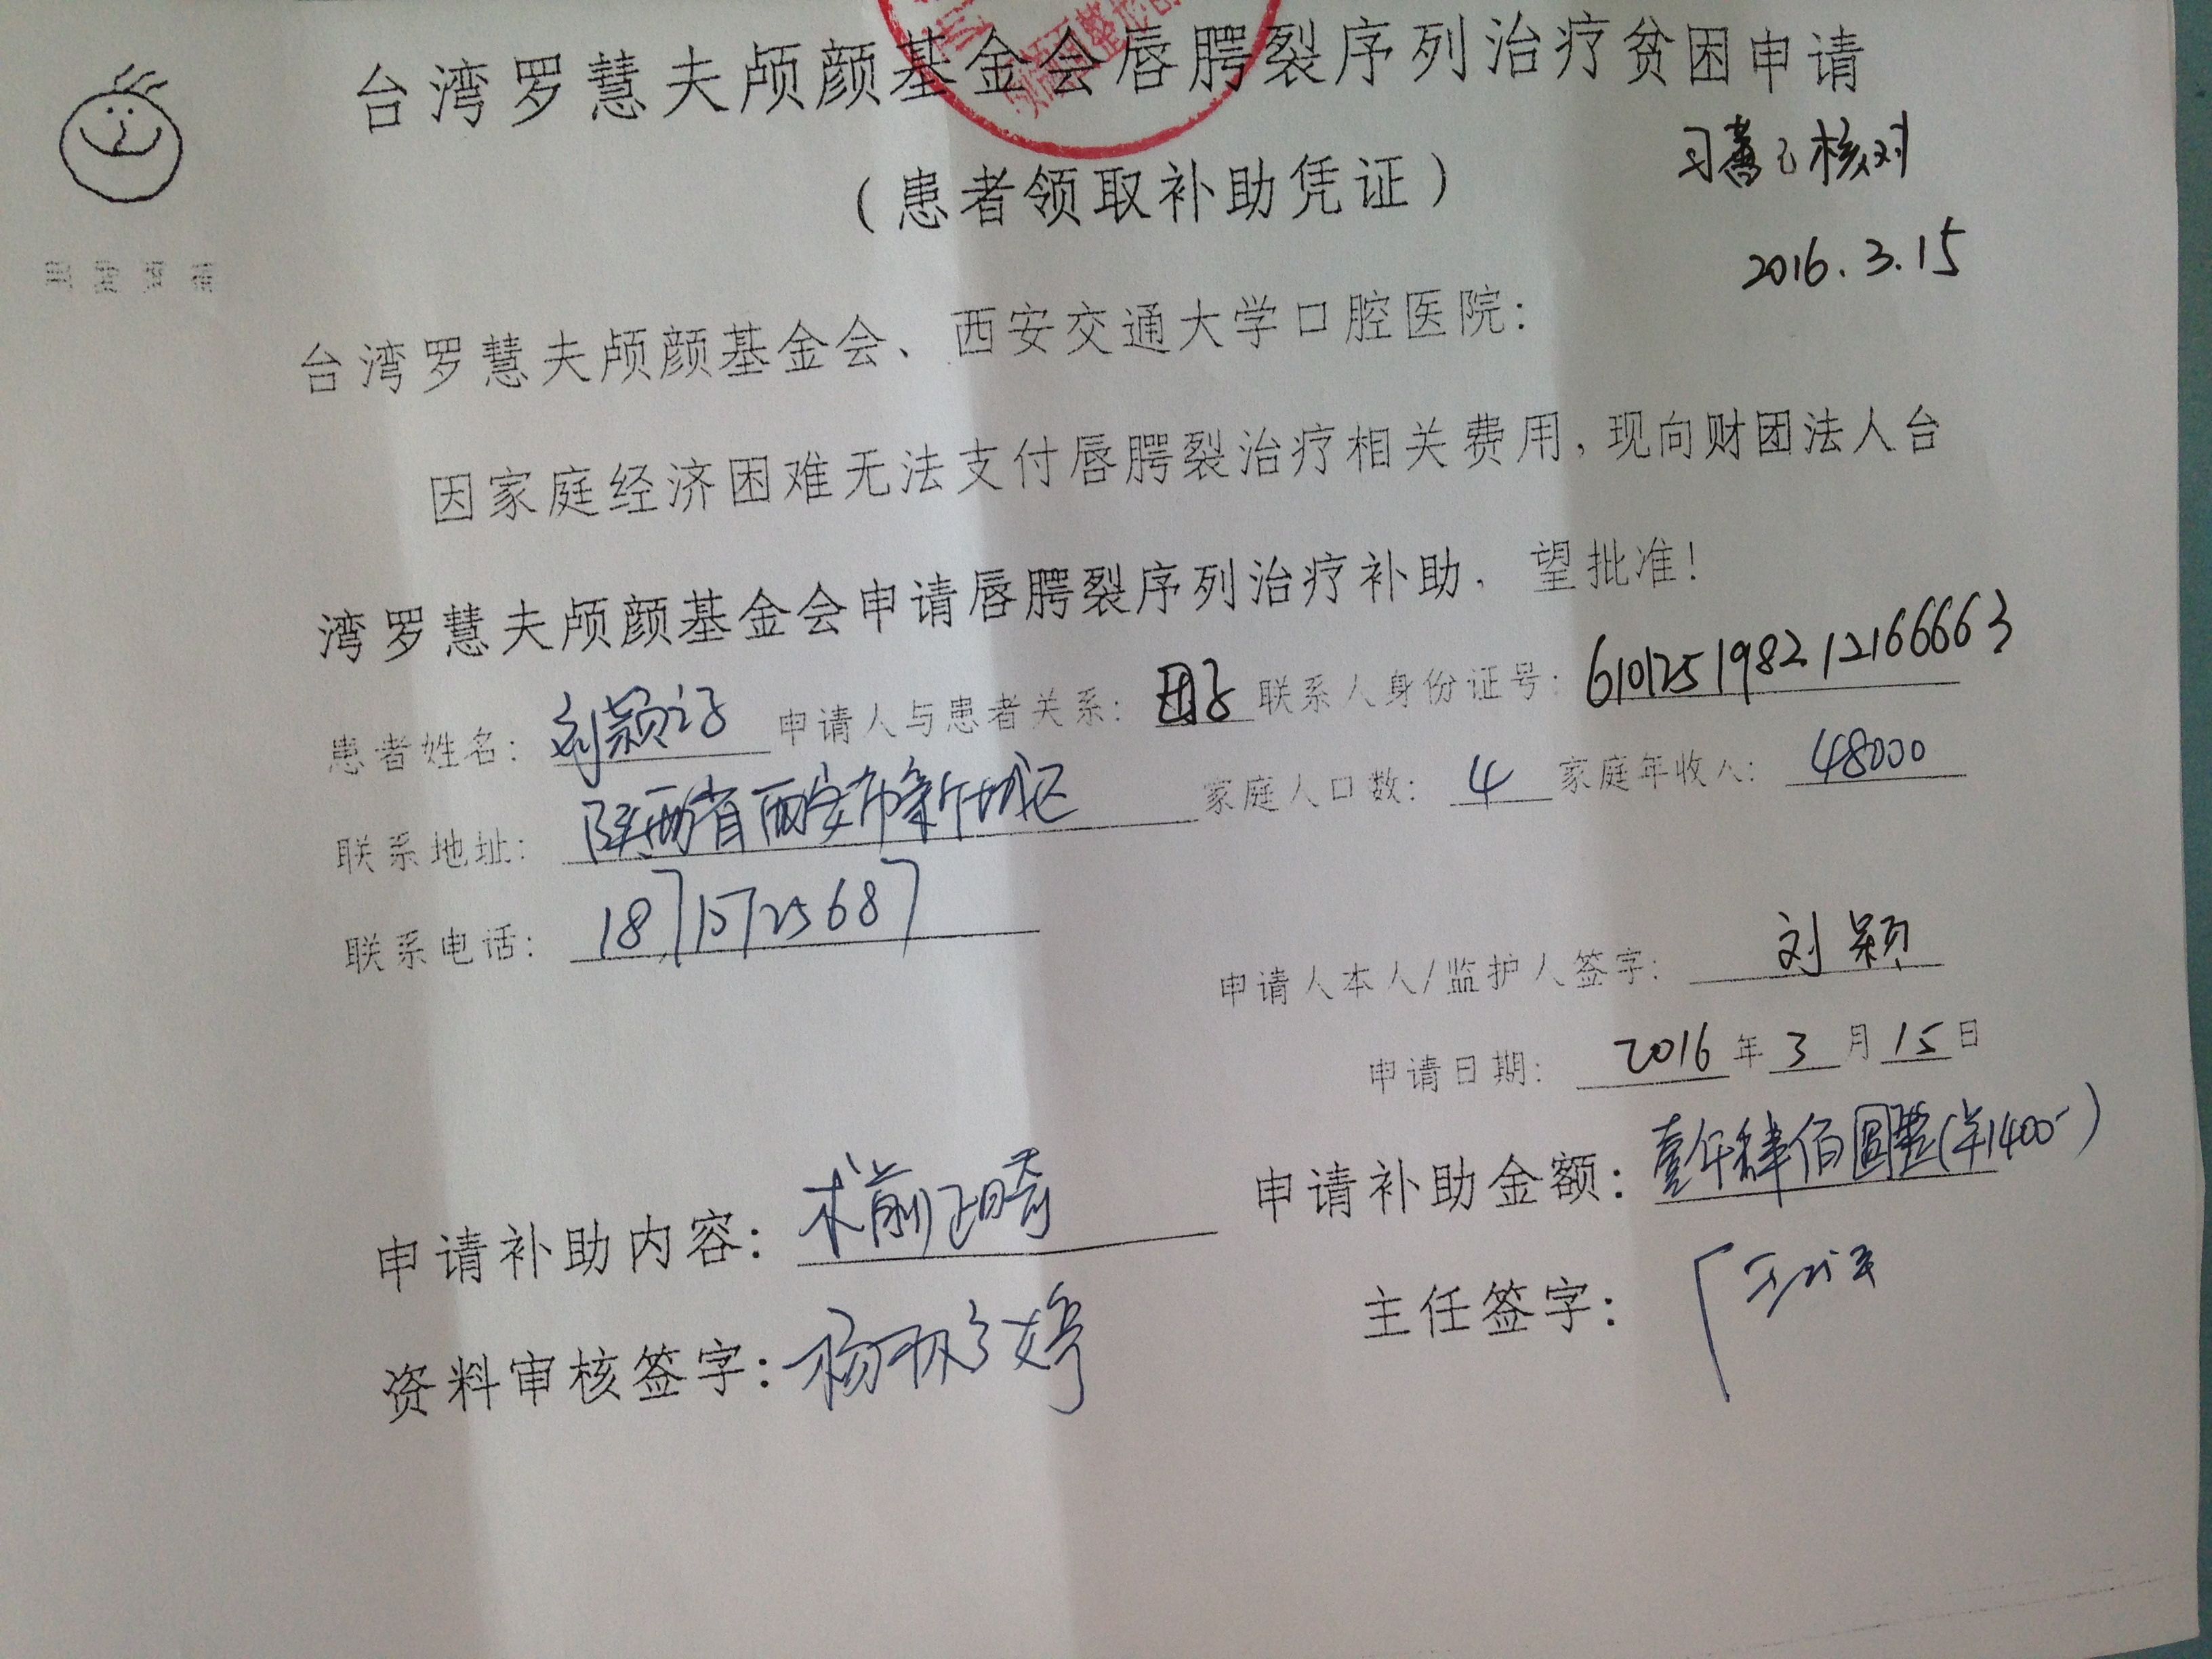 台湾罗慧夫颅颜基金会唇腭裂序列治疗贫困申请
(患者领取补助凭证)
已核对
2016.3.15
台湾罗慧夫颅颜基金会、西安交通大学口腔医院:
因家庭经济困难无法支付唇腭裂治疗相关费用,现向财团法人台
湾罗慧夫颅颜基金会申请唇腭裂序列治疗补助.望批准!
患者姓名: 刘颖之子 申请人与患者关系: 母子 联系人身份证号: 610125198212166663
联系地址: 陕西省西安市新城区 家庭人口数: 4 家庭年收入: 48000
联系电话: 18715725687
申请人本人/监护人签字: 刘颖
申请日期: 2016年3月15日
申请补助内容: 术前正畸 申请补助金额: 壹仟肆佰圆整(¥1400-)
资料审核签字: 主任签字: